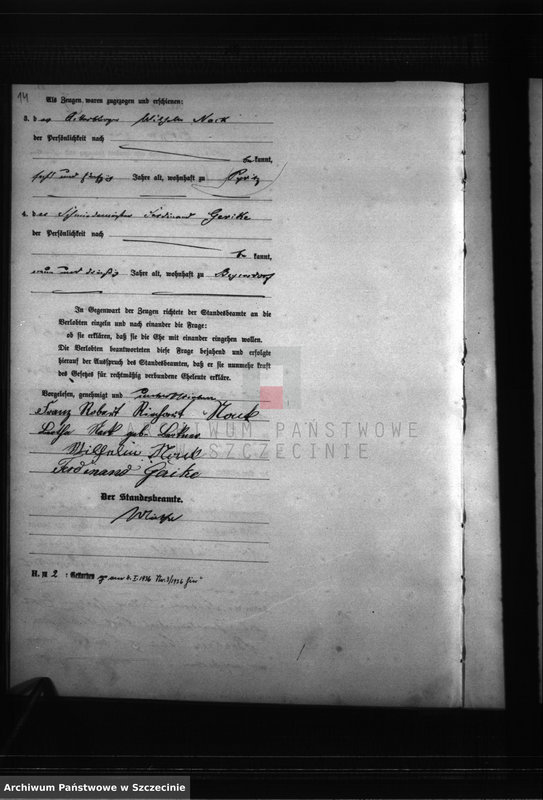 14
Als Zeugen waren zugezogen und erschienen:
3. der Wilhelm Nack
der Persönlichkeit nach
be kannt,
sechs und fünfzig Jahre alt, wohnhaft zu Pyritz
4. der Schmiedemeister Ferdinand Gerike
der Persönlichkeit nach
be kannt,
neun und dreißig Jahre alt, wohnhaft zu Beyersdorf
In Gegenwart der Zeugen richtete der Standesbeamte an die
Verlobten einzeln und nach einander die Frage:
ob sie erklären, daß sie die Ehe mit einander eingehen wollen.
Die Verlobten beantworteten diese Frage bejahend und erfolgte
hierauf der Ausspruch des Standesbeamten, daß er sie nunmehr kraft
des Gesetzes für rechtmäßig verbundene Eheleute erkläre.
Vorgelesen, genehmigt und unterschrieben
Franz Robert Richart Nack
Nack geb.
Wilhelm Nack
Ferdinand
Der Standesbeamte.
H. zu 2 : Gestorben am 1936 Nr. 3/1936
ARCHIWUM PAŃSTWOWE
W SZCZECINIE
Archiwum Państwowe w Szczecinie